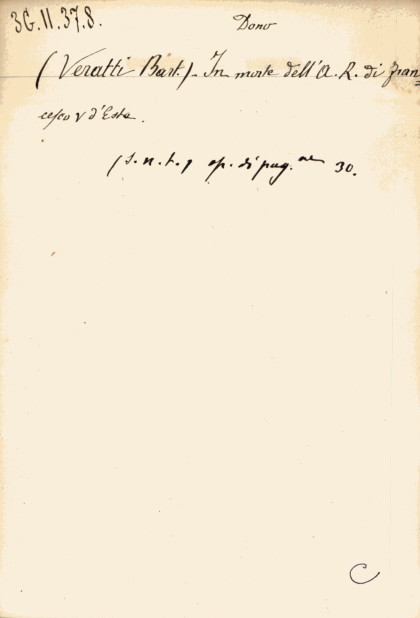 3G.II.37.8.
Dono
(Veratti Bart.) - In morte dell'A. R. di Fran=
cesco V d'Este.
(s. n. t.) op. di pag.ne 30.
C